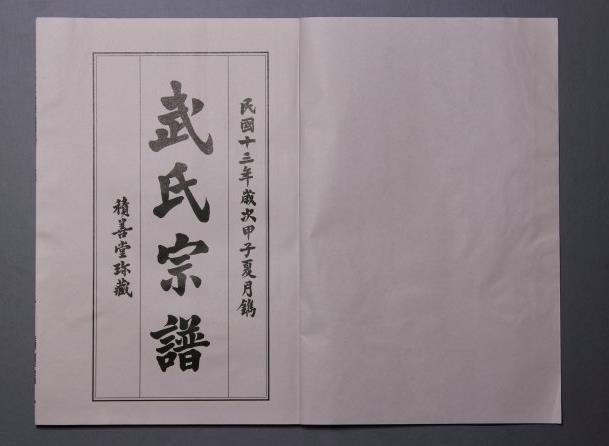 民國十三年歲次甲子夏月鐫
武氏宗譜
積善堂珎藏